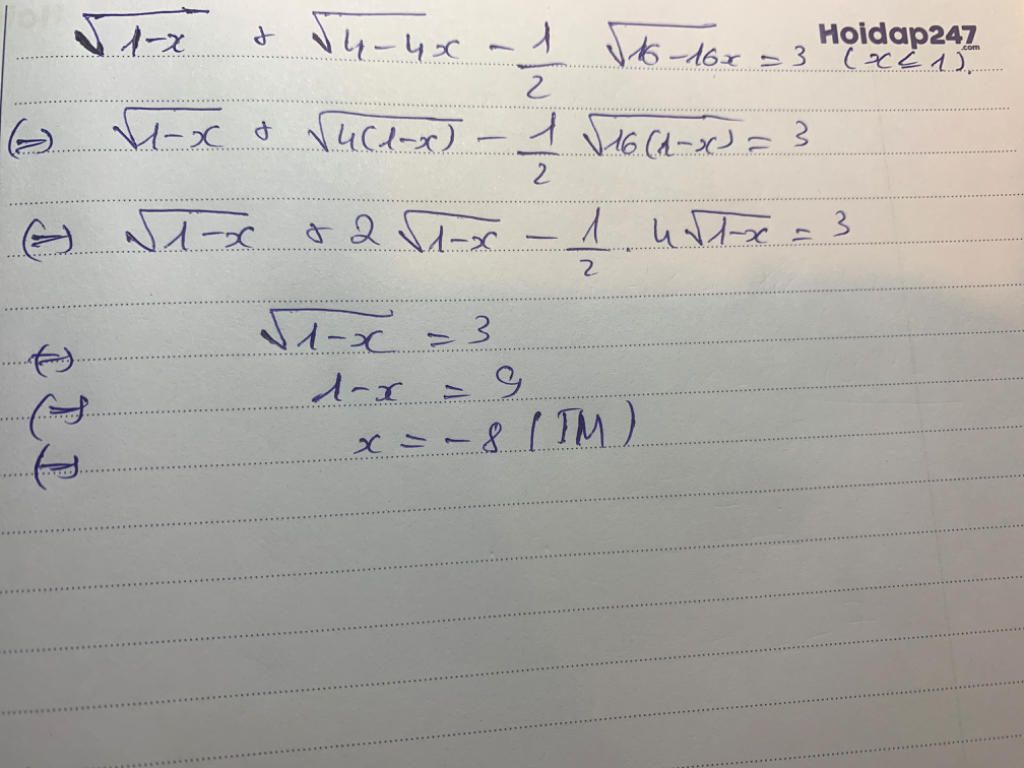 √1-x + √4-4x - 1/2 √16-16x = 3 (x ≤ 1).
Hoidap247
.com
(=) √1-x + √4(1-x) - 1/2 √16(1-x) = 3
(=) √1-x + 2 √1-x - 1/2 . 4√1-x = 3
(=) √1-x = 3
(=) 1-x = 9
(=) x = -8 (TM)